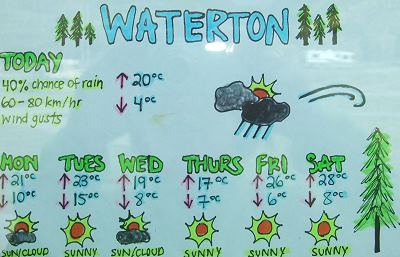 WATERTON
TODAY
40% chance of rain ↑ 20°C
60-80 km/hr ↓ 4°C
wind gusts
MON TUES WED THURS FRI SAT
↑ 21°C ↑ 23°C ↑ 19°C ↑ 17°C ↑ 26°C ↑ 28°C
↓ 10°C ↓ 15°C ↓ 8°C ↓ 7°C ↓ 6°C ↓ 8°C
SUN/CLOUD SUNNY SUN/CLOUD SUNNY SUNNY SUNNY